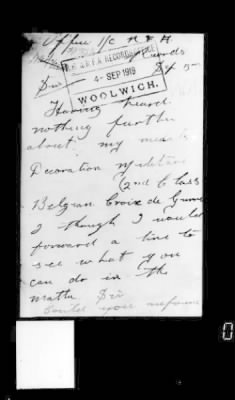 Office i/c R F A
Records
R.H. & R.F.A. RECORD OFFICE
4 - SEP 1919
WOOLWICH.
Sir
Having heard
nothing further
about my
Decoration
(2nd Class
Belgian Croix de Guerre
I though I would
forward a line to
see what you
can do in the
matter Sir
you